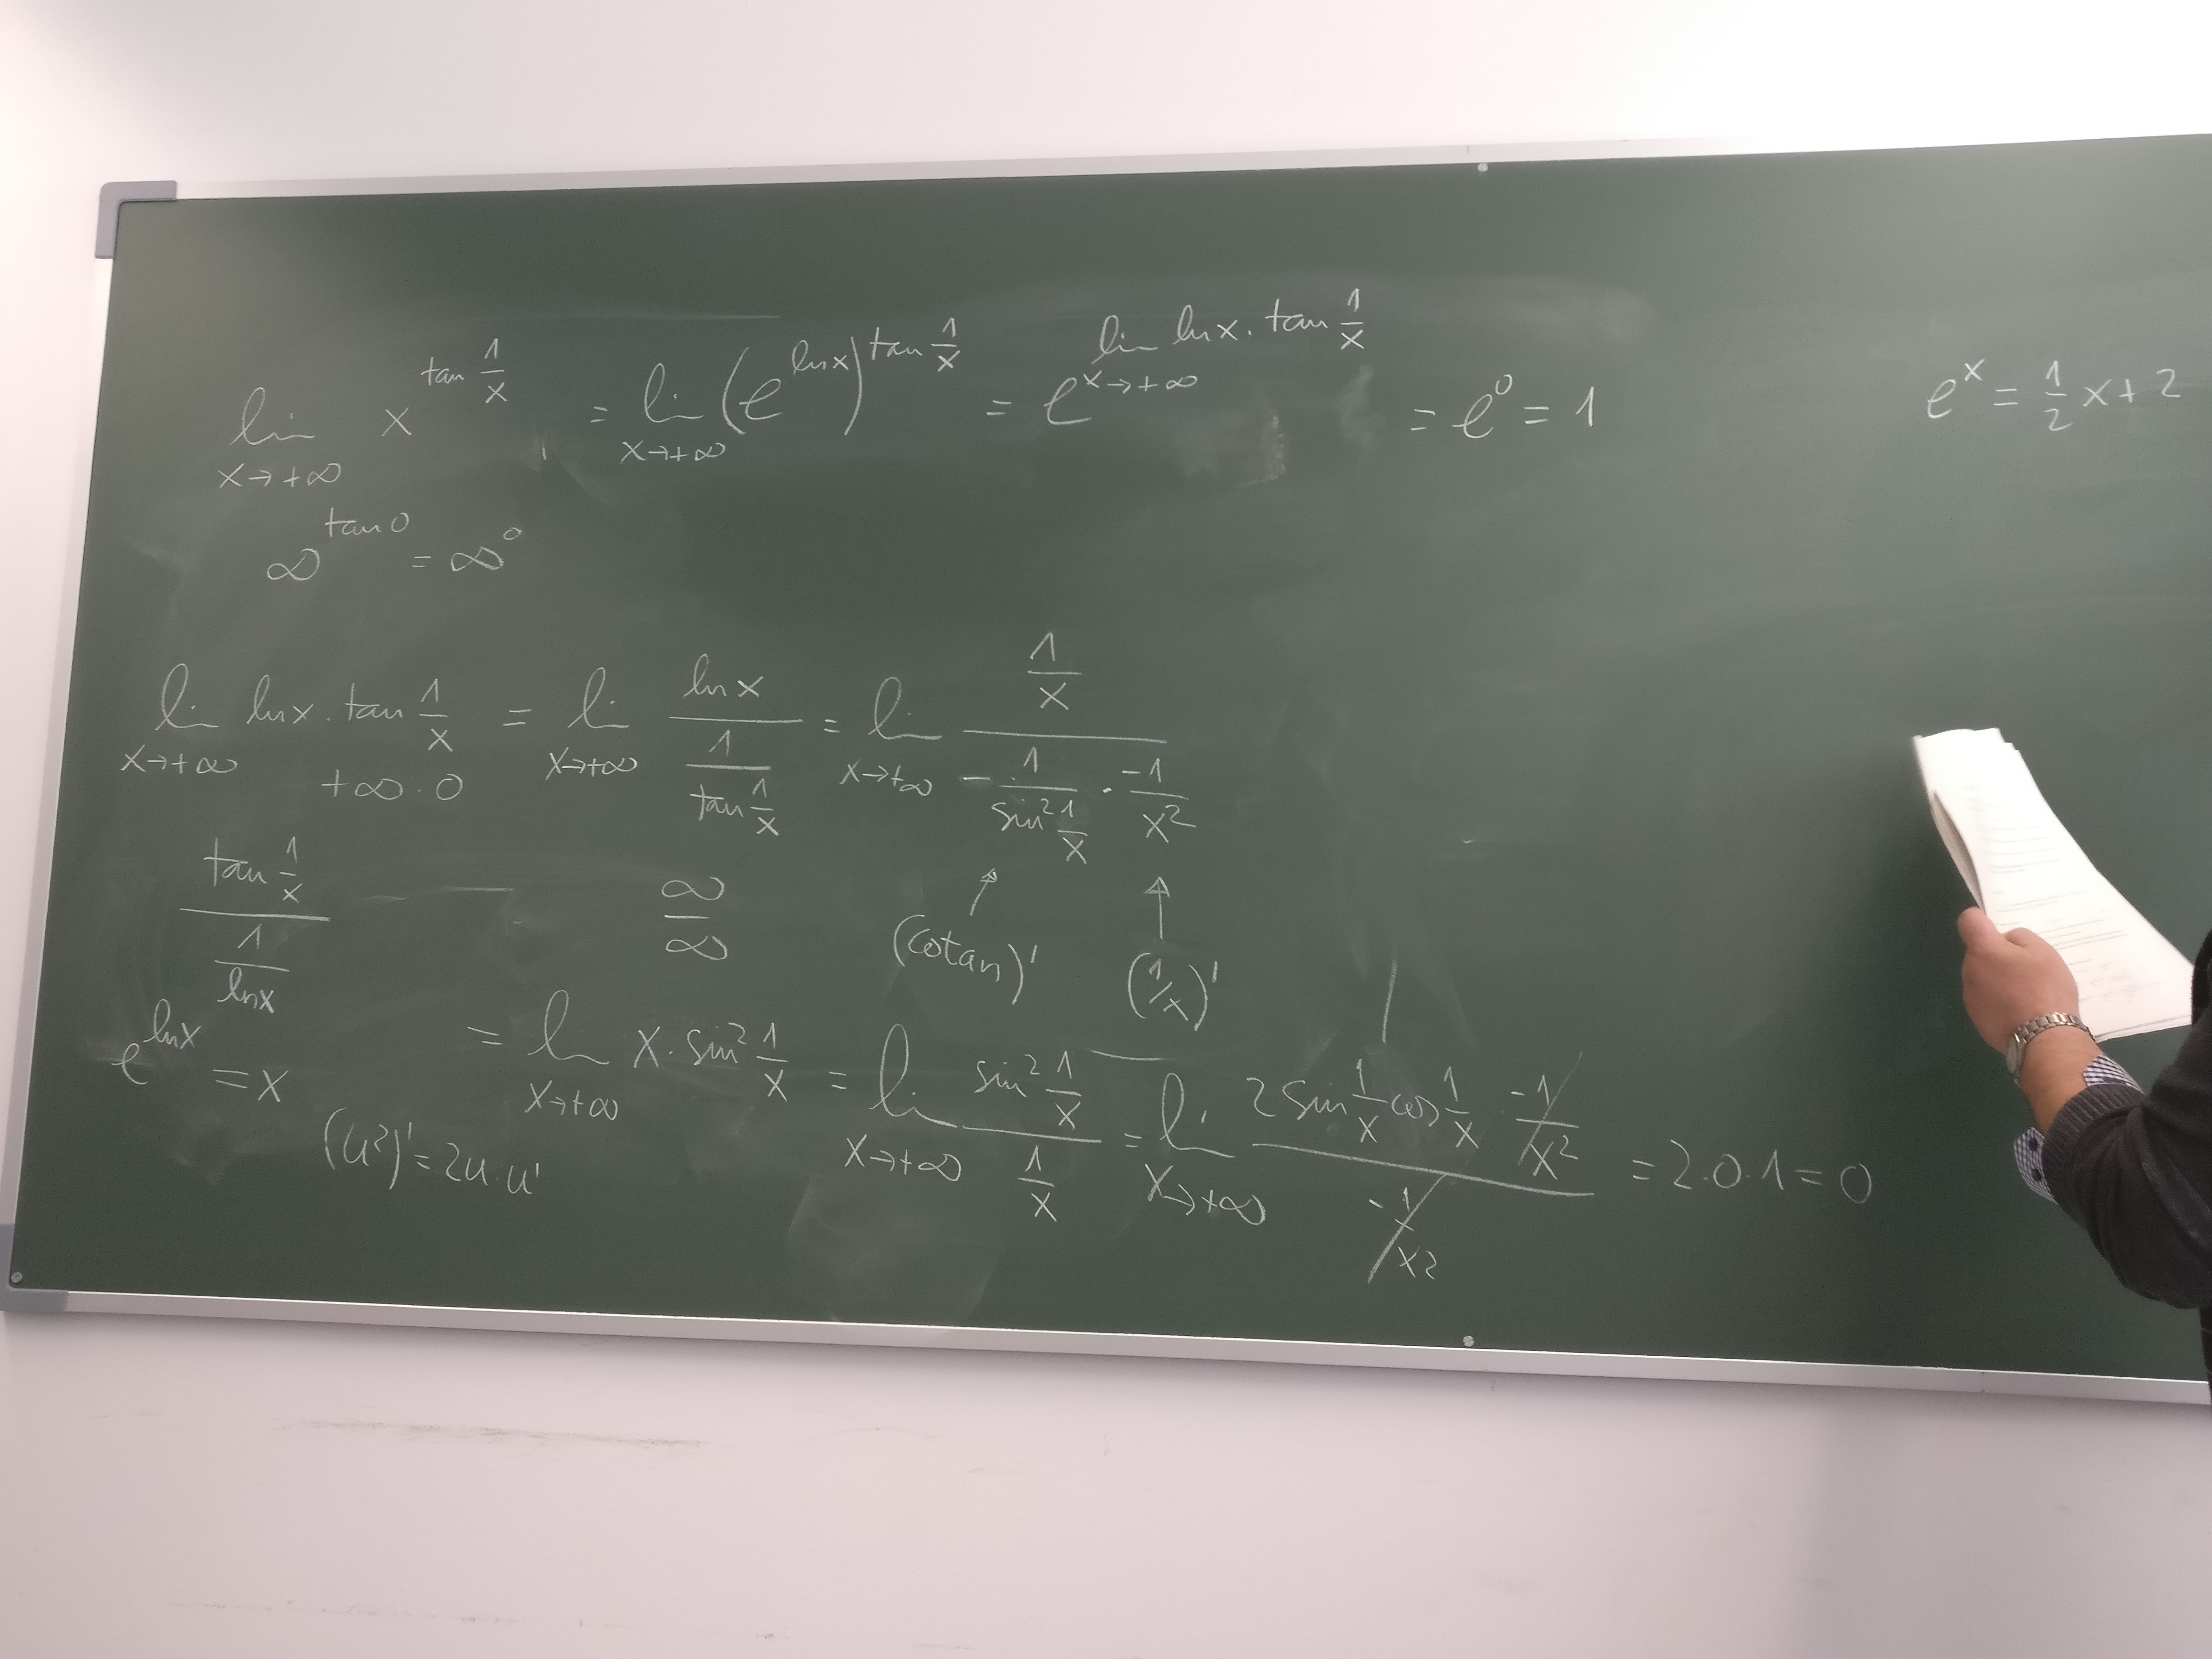 lim x→+∞ x^(tan 1/x) = lim x→+∞ (e^(ln x))^(tan 1/x) = e^(lim x→+∞ ln x · tan 1/x) = e^0 = 1
e^x = 1/2 x + 2
∞^(tan 0) = ∞^0
lim x→+∞ ln x · tan 1/x = lim x→+∞ (ln x)/(1/(tan 1/x)) = lim x→+∞ (1/x)/(-1/(sin² 1/x) · -1/x²)
+∞ · 0
(tan 1/x)/(1/(ln x))
∞/∞
(cotan)'
(1/x)'
e^(ln x) = x
= lim x→+∞ x · sin² 1/x = lim x→+∞ (sin² 1/x)/(1/x) = lim x→+∞ (2 sin 1/x cos 1/x · -1/x²)/(-1/x²) = 2·0·1 = 0
(u²)' = 2u·u'